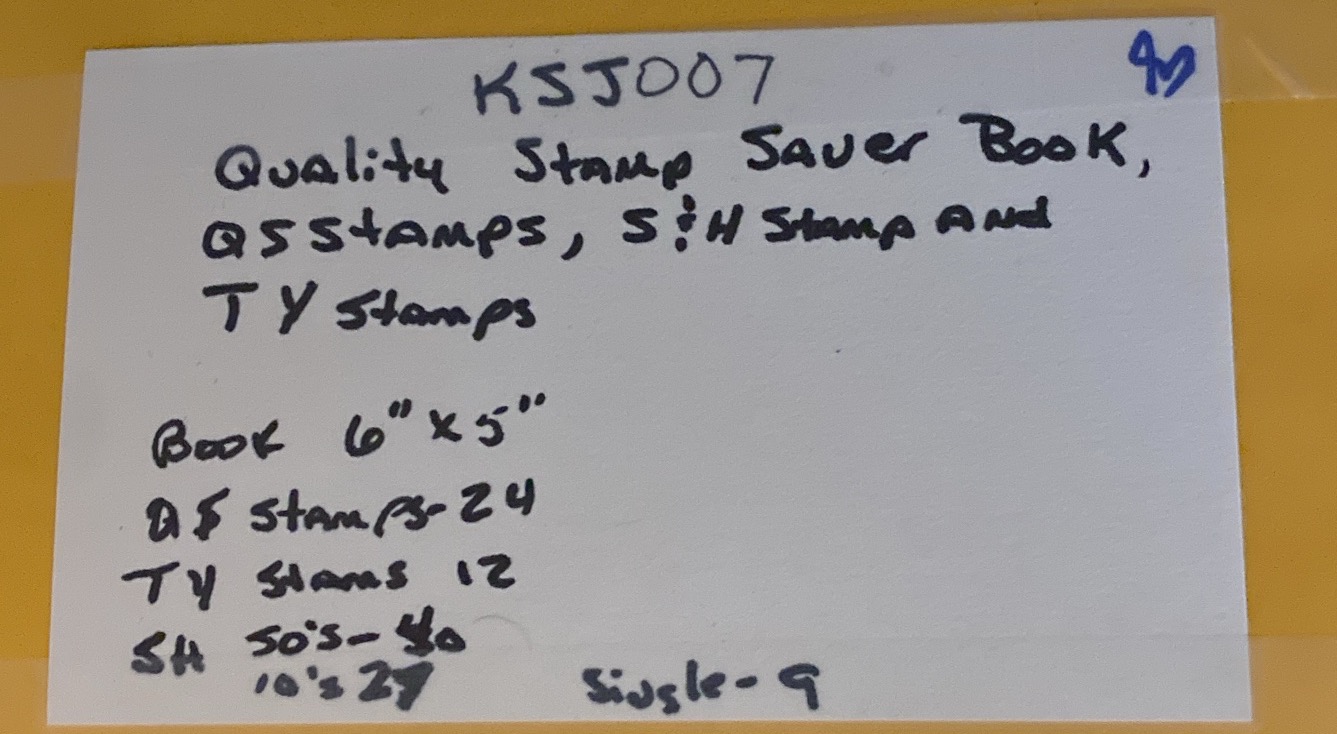 KSJ007
Quality Stamp Saver Book,
QS Stamps, S&H Stamp And
TY Stamps
Book 6" x 5"
QS Stamps-24
TY Stams 12
SH 50's-40
10's 27 Single-9